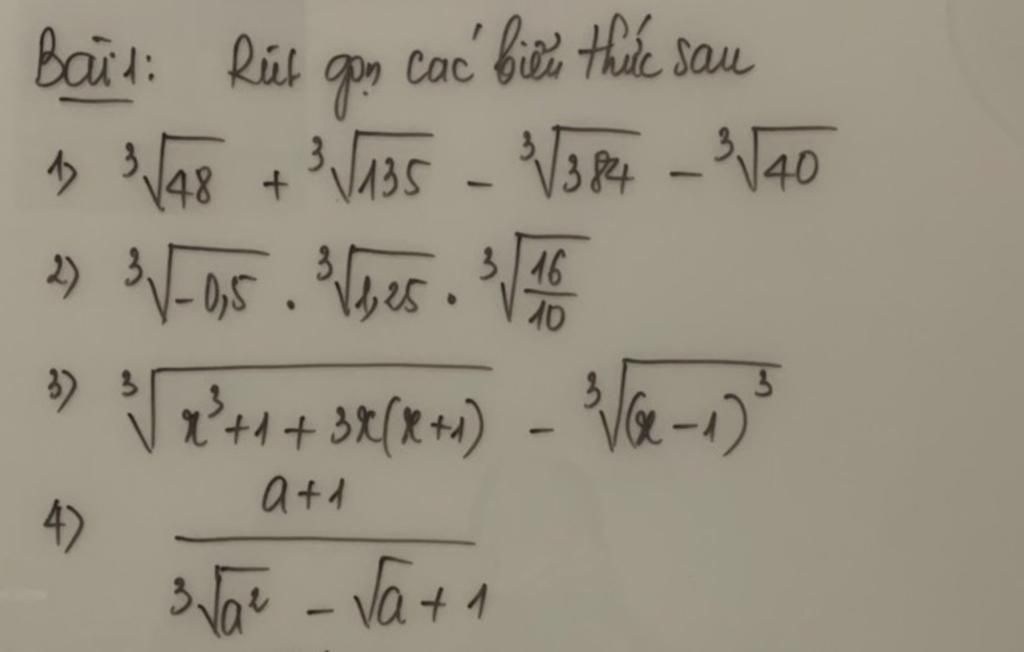 Bài 1: Rút gọn các biểu thức sau
1) ∛48 + ∛135 - ∛384 - ∛40
2) ∛-0,5 . ∛1,25 . ∛(16/10)
3) ∛(x³+1+3x(x+1)) - ∛((x-1)³)
4) (a+1)/(∛a² - √a + 1)